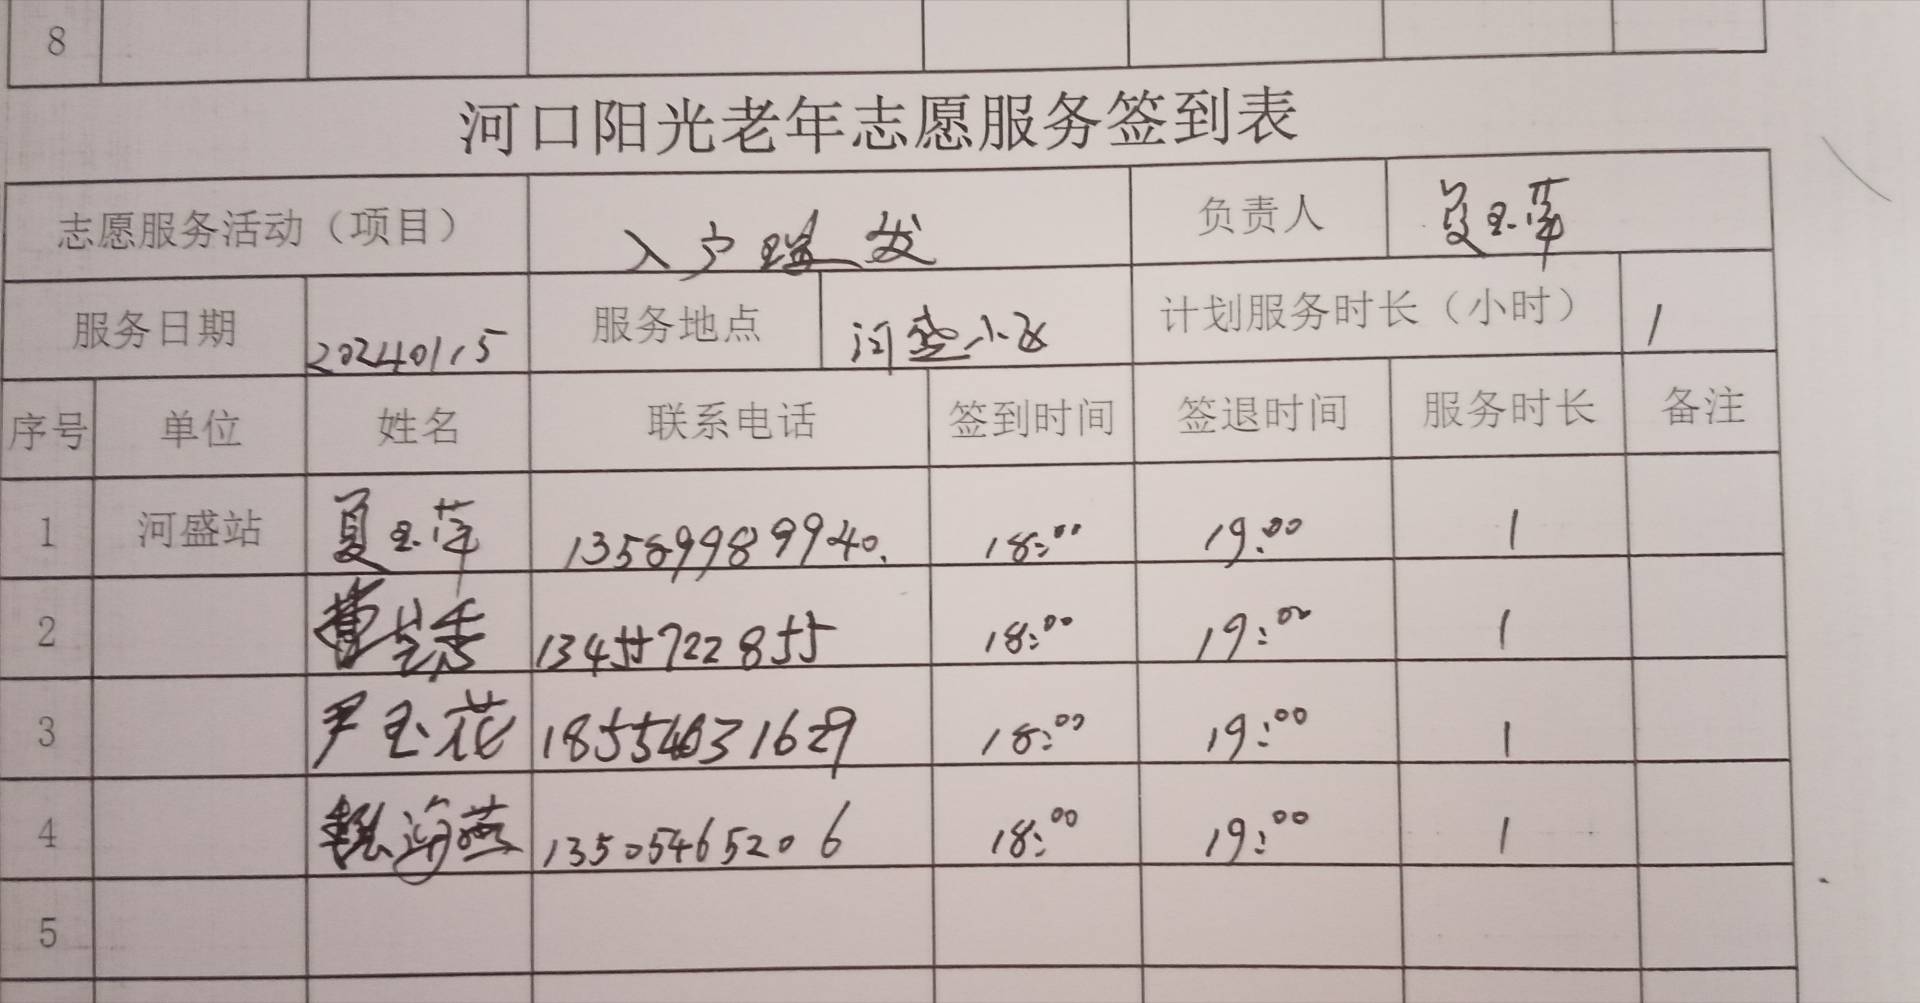 8
河口阳光老年志愿服务签到表
志愿服务活动（项目） 入户理发 负责人 夏玉萍
服务日期 20240115 服务地点 河盛小区 计划服务时长（小时） 1
序号 单位 姓名 联系电话 签到时间 签退时间 服务时长 备注
1 河盛站 夏玉萍 13589989940. 18:00 19:00 1
2 13455722855 18:00 19:00 1
3 尹玉花 18554631629 18:00 19:00 1
4 海燕 13505465206 18:00 19:00 1
5